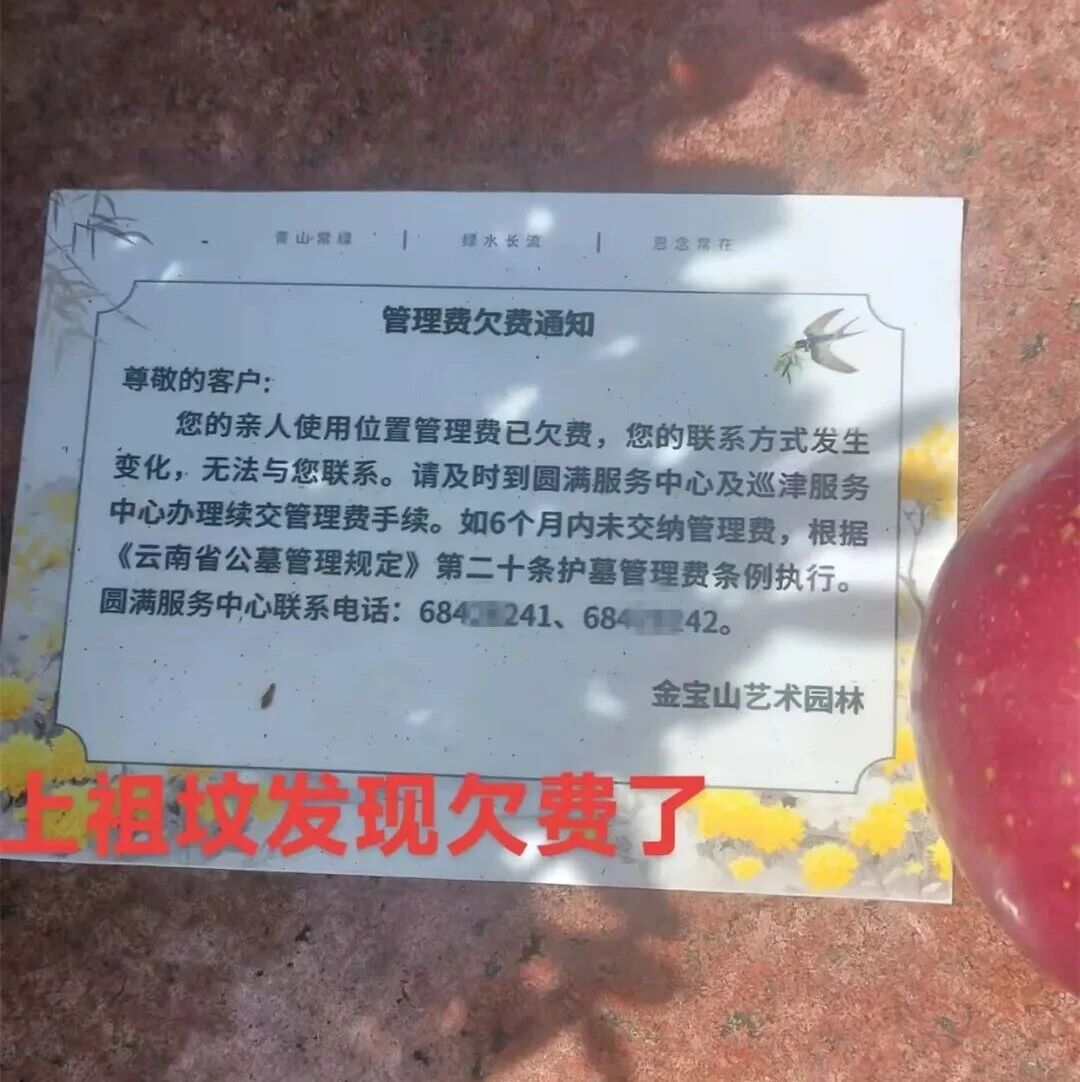 青山常绿 | 绿水长流 | 思念常在
管理费欠费通知
尊敬的客户:
您的亲人使用位置管理费已欠费，您的联系方式发生
变化，无法与您联系。请及时到圆满服务中心及巡津服务
中心办理续交管理费手续。如6个月内未交纳管理费，根据
《云南省公墓管理规定》第二十条护墓管理费条例执行。
圆满服务中心联系电话：684 241、684 242。
金宝山艺术园林
上祖坟发现欠费了